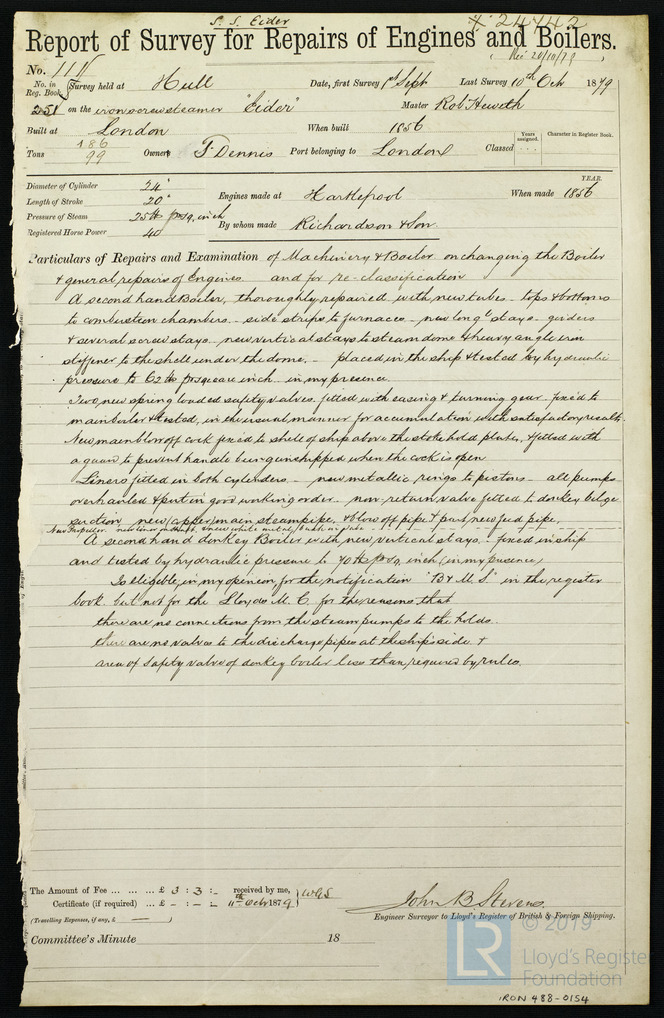 S. S. Eider
24742
Report of Survey for Repairs of Engines and Boilers.
No. 1111
No. in Reg. Book. Survey held at Hull Date, first Survey 1st Sept Last Survey 10th Oct 1879
251 on the iron screw steamer "Eider" Master Rob. Hewith
Built at London When built 1856
Tons 186 99 Owners F. Dennis Port belonging to London Classed Years assigned. Character in Register Book.
Diameter of Cylinder 24" Engines made at Hartlepool When made YEAR. 1856
Length of Stroke 20"
Pressure of Steam 25 lb pr sq. inch By whom made Richardson & Son
Registered Horse Power 40
Particulars of Repairs and Examination of Machinery & Boiler on changing the Boiler
& general repairs of Engines and for re-classification
A second hand Boiler, thoroughly repaired with new tubes - tops & bottoms
to combustion chambers - side strips to furnaces - new longl stays - girders
& several screw stays - new vertical stays to steam dome & heavy angle iron
stiffener to the shell under the dome, - placed in the ship & tested by hydraulic
pressure to 62 lb pr square inch in my presence
Two new spring loaded safety valves fitted with easing & turning gear - fixed to
main boiler & tested, in the usual manner for accumulation with satisfactory results.
New main blow off cock fixed to shell of ship above the stoke hold plates, & fitted with
a guard to prevent handle being unshipped when the cock is open
Liners fitted in both cylinders - new metallic rings to pistons - all pumps
overhauled & put in good working order - non-return valve fitted to donkey bilge
suction new copper main steam pipe, & blow off pipe & part new feed pipe,
New Propeller
A second hand donkey Boiler with new vertical stays - fixed in ship
and tested by hydraulic pressure to 70 lb pr sq. inch (in my presence)
Is eligible, in my opinion for the notification "B & M S" in the register
book but not for the Lloyds M. C. for the reasons that
there are no connections from the steam pumps to the holds.
there are no valves to the discharge pipes at the ship's side &
area of safety valve of donkey boiler less than required by rules
The Amount of Fee ... ... ... £ 3 : 3 : - received by me, W.G.S
Certificate (if required) ... £ - : - : - 11th Octr 1879
(Travelling Expenses, if any, £ — )
John B. Stevens
Engineer Surveyor to Lloyd's Register of British & Foreign Shipping.
Committee's Minute 18
© 2019
LR Lloyd's Register
Foundation
IRON 488-0154